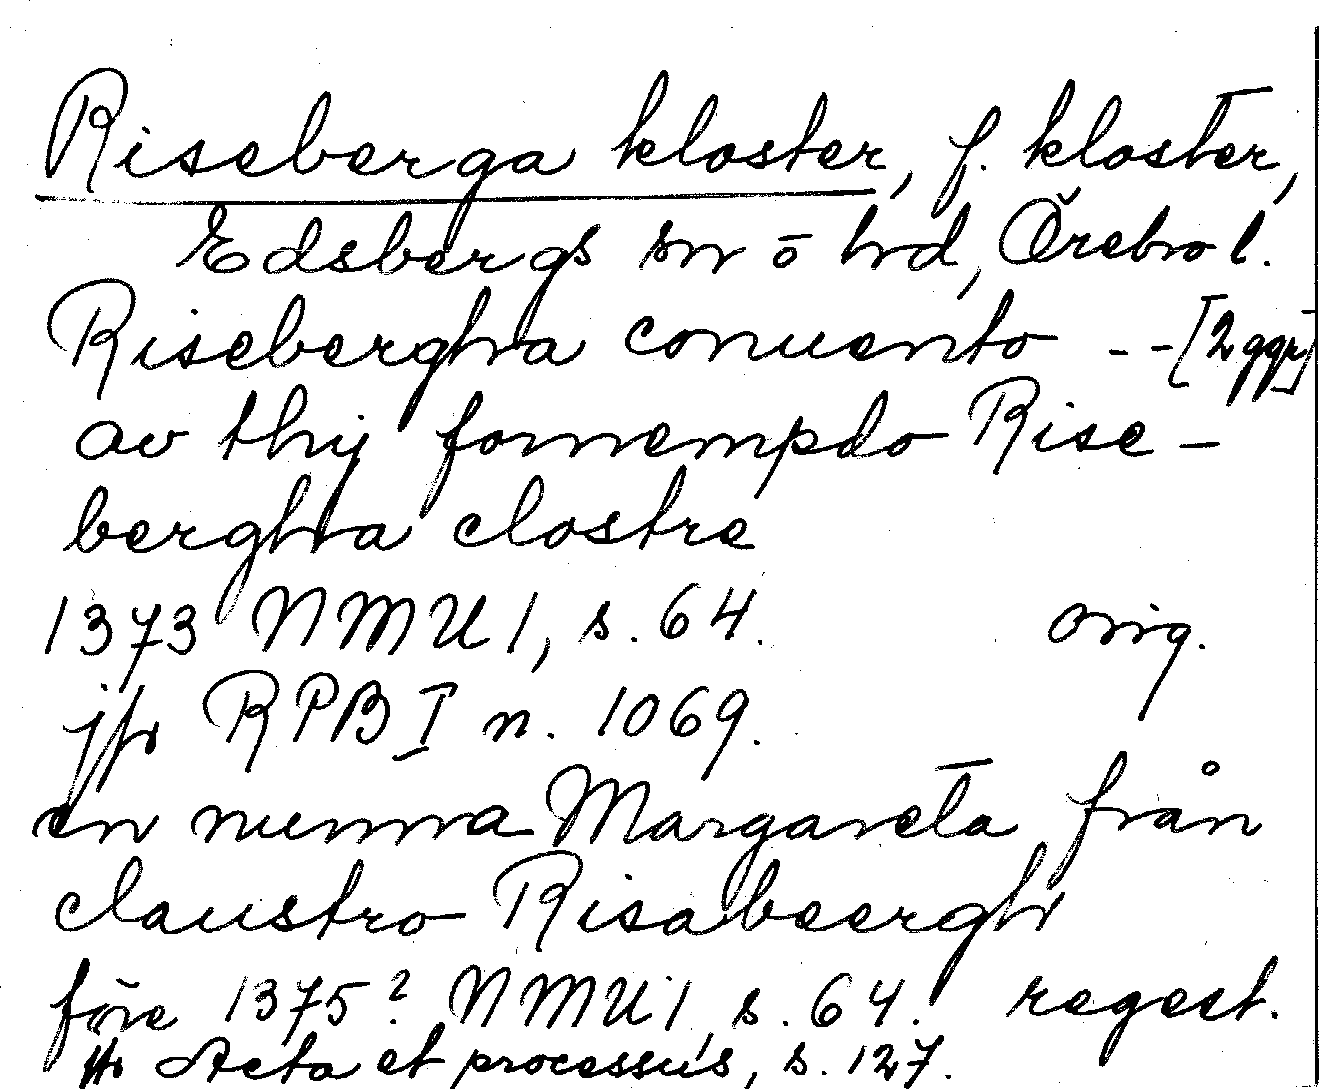 Riseberga kloster, f. kloster,
Edsbergs sn o hd, Örebro l.
Risebergha conuento -- [2 ggr]
av thy fornempdo Rise-
bergha clostre
1373 NMU 1, s. 64. orig.
jfr RPB I n. 1069.
en nunna Margareta från
claustro Risabeergh
före 1375? NMU 1, s. 64. regest.
jfr Acta et processus, s. 127.